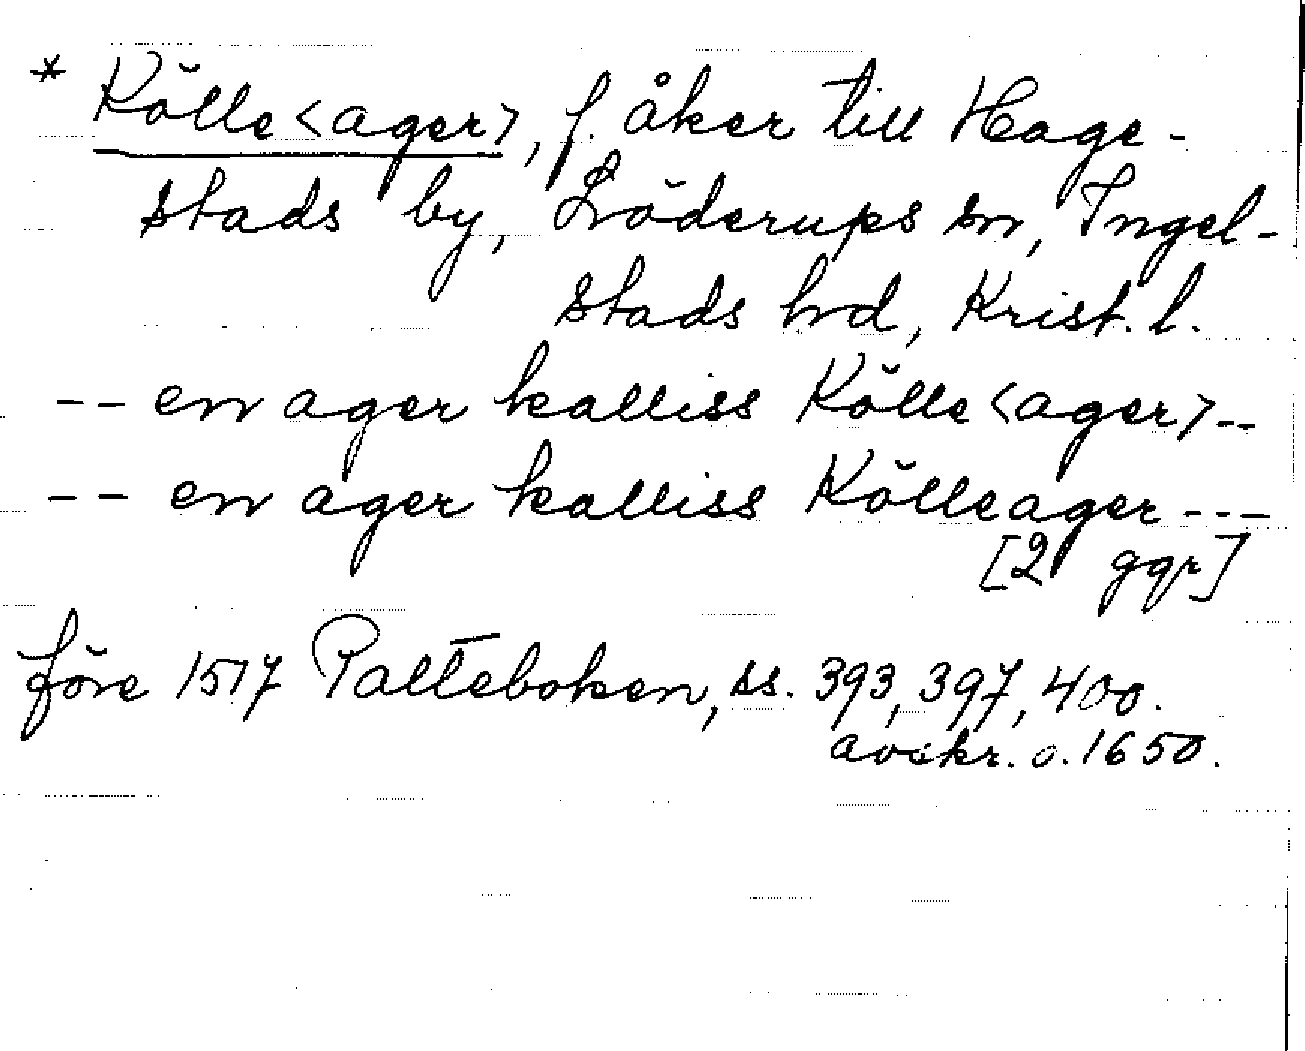 * Kölle<ager>, f. åker till Hage-
stads by, Löderups sn, Ingel-
stads hd, Krist. l.
-- en ager kalliss Kölle<ager>--
-- en ager kalliss Kölleager---
[2 ggr]
före 1517 Palteboken, ss. 393, 397, 400.
avskr. o. 1650.